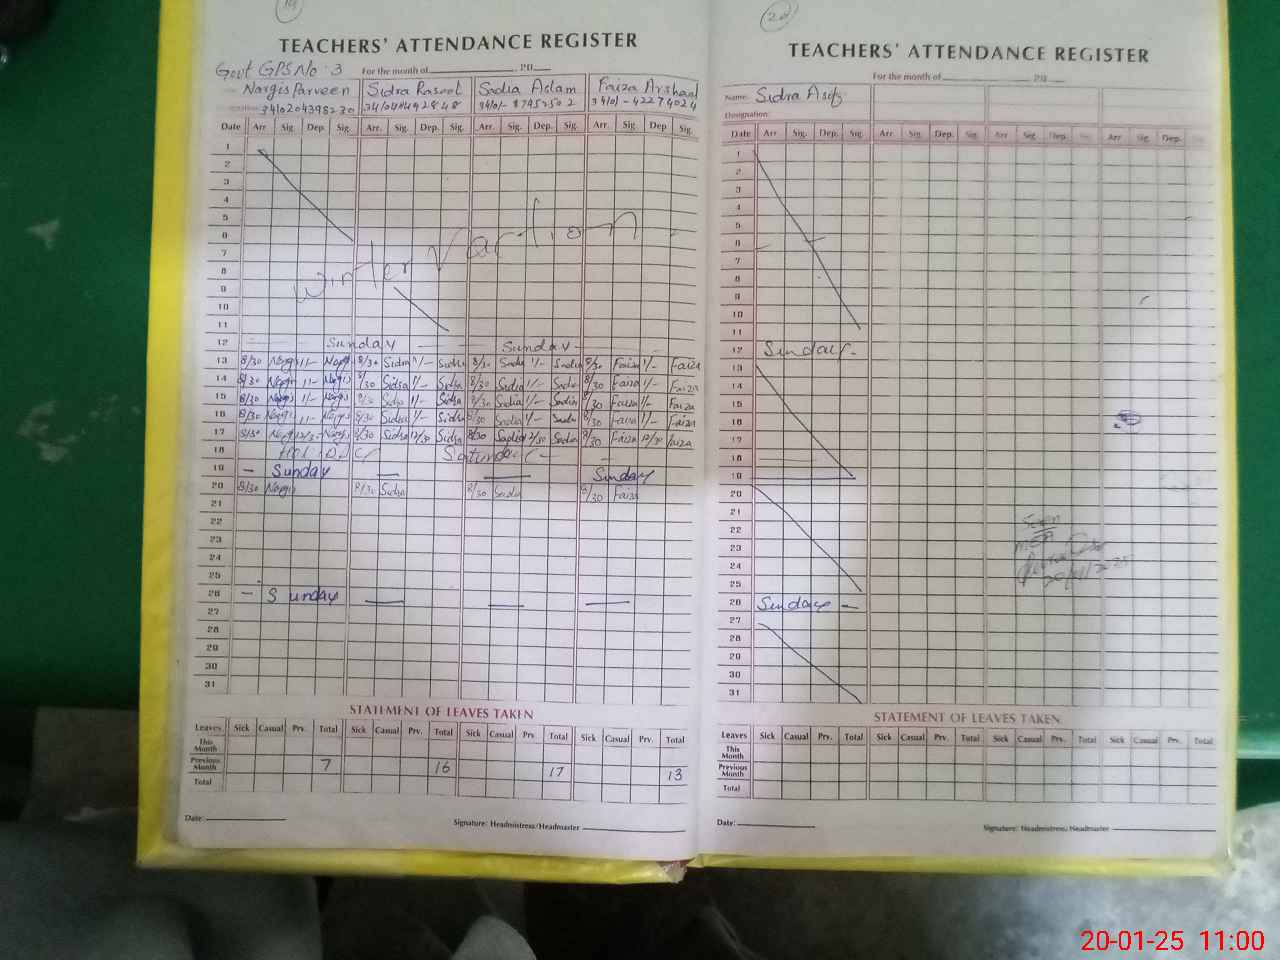 19
TEACHERS' ATTENDANCE REGISTER
Govt GPS No. 3 For the month of 20
Nargis Parveen Sidra Rasool Sadia Aslam Faiza Arshad
Date Arr Sig. Dep. Sig. Arr. Sig. Dep. Sig. Arr. Sig. Dep. Sig. Arr. Sig. Dep Sig.
1
2
3
4
5
6
7
8
9
10
11
Winter Vaction
12 Sunday Sunday -
13 8/30 Nargis 1/- Nargis 8/30 Sidra 1/- Sidra 8/30 Sadia 1/- Sadia 8/30 Faiza 1/- Faiza
14 8/30 Nargis 1/- Nargis 8/30 Sidra 1/- Sidra 8/30 Sadia 1/- Sadia 8/30 Faiza 1/- Faiza
15 8/30 Nargis 1/- Nargis 8/30 Sidra 1/- Sidra 8/30 Sadia 1/- Sadia 8/30 Faiza 1/- Faiza
16 8/30 Nargis 1/- Nargis 8/30 Sidra 1/- Sidra 8/30 Sadia 1/- Sadia 8/30 Faiza 1/- Faiza
17 8/30 Nargis 12/30 Nargis 8/30 Sidra 12/30 Sidra 8/30 Sadia 12/30 Sadia 8/30 Faiza 12/30 Faiza
18
19 - Sunday — — Sunday
20 8/30 Nargis 8/30 Sidra 8/30 Sadia 8/30 Faiza
21
22
23
24
25
26 - Sunday — — —
27
28
29
30
31
STATEMENT OF LEAVES TAKEN
Leaves Sick Casual Prv. Total Sick Casual Prv. Total Sick Casual Prv. Total Sick Casual Prv. Total
This Month
Previous Month 7 16 17 13
Total
Date: Signature: Headmistress/Headmaster
20
TEACHERS' ATTENDANCE REGISTER
For the month of 20
Name: Sidra Asif
Designation:
Date Arr Sig. Dep. Sig. Arr. Sig. Dep. Sig. Arr Sig Dep. Arr Sig. Dep.
1
2
3
4
5
6
7
8
9
10
11
12 Sunday -
13
14
15
16
17
18
19
20
21
22
23
24
25
26 Sunday -
27
28
29
30
31
STATEMENT OF LEAVES TAKEN
Leaves Sick Casual Prv. Total Sick Casual Prv. Total Sick Casual Prv. Total Sick Casual Prv. Total
This Month
Previous Month
Total
Date: Signature: Headmistress/Headmaster
20-01-25 11:00